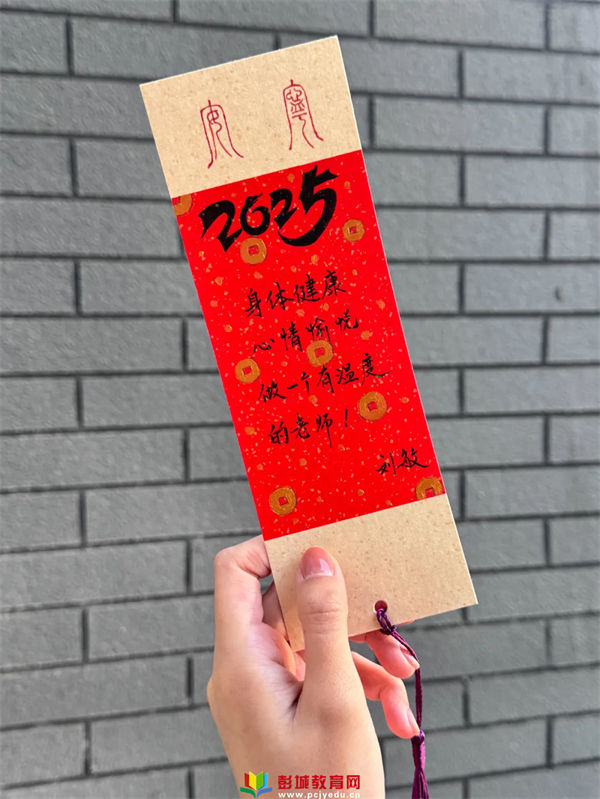 安 寧
2025
身体健康
心情愉悦
做一个有温度
的老师！
刘敏
彭城教育网
www.pcjyedu.cn